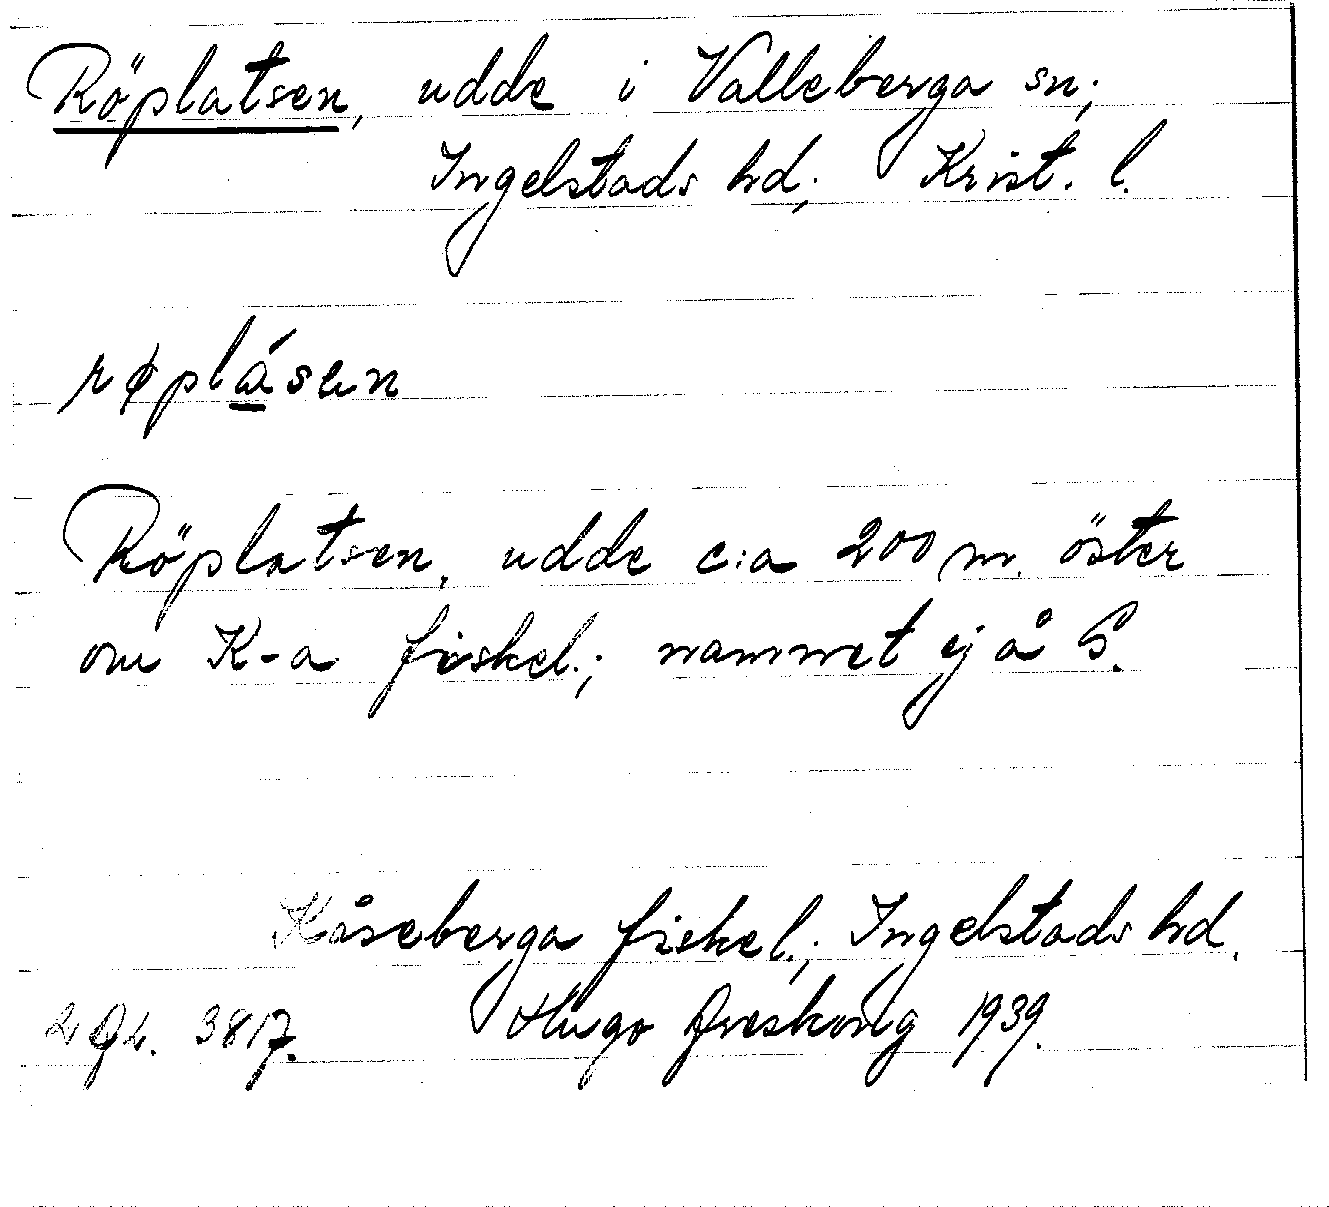 Röplatsen, udde i Valleberga sn;
Ingelstads hd; Krist. l.
røplásen
Röplatsen, udde c:a 200 m. öster
om K-a fiskel.; namnet ej å G.
Kåseberga fiskel.; Ingelstads hd.
Hugo Areskoug 1939.